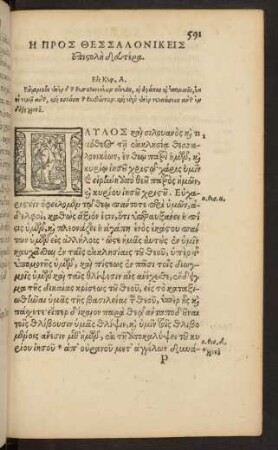 591
Η ΠΡΟΣ ΘΕΣΣΑΛΟΝΙΚΕΙΣ
ἐπιστολὴ δευτέρα.
Εἰς Κεφ. Α.
ΠΑΥΛΟΣ καὶ σιλουανὸς κὶ τι
μόθεος τῇ ἐκκλησίᾳ θεσσα
λονικέων, ἐν θεῷ πατρὶ ἡμῶν, κὶ
κυρίῳ ἰησοῦ χριστῷ χάρις ὑμῖν
κὶ εἰρήνη ἀπὸ θεοῦ πατρὸς ἡμῶν,
κὶ κυρίου ἰησοῦ χριστοῦ. Εὐχα
ριστεῖν ὀφείλομεν τῷ θεῷ πάντοτε περὶ ὑμῶν, ἀ
δελφοὶ, καθὼς ἄξιόν ἐστιν, ὅτι ὑπεραυξάνει ἡ πί
στις ὑμῶν, κὶ πλεονάζει ἡ ἀγάπη ἑνὸς ἑκάστου πάν
των ὑμῶν εἰς ἀλλήλους· ὥστε ἡμᾶς αὐτοὺς ἐν ὑμῖν
καυχᾶσθαι ἐν ταῖς ἐκκλησίαις τοῦ θεοῦ, ὑπὲρ τῆς
ὑπομονῆς ὑμῶν, κὶ πίστεως ἐν πᾶσι τοῖς διωγ
μοῖς ὑμῶν καὶ ταῖς θλίψεσιν αἷς ἀνέχεσθε, ἔνδειγ
μα τῆς δικαίας κρίσεως τοῦ θεοῦ, εἰς τὸ καταξι
ωθῆναι ὑμᾶς τῆς βασιλείας τοῦ θεοῦ, ὑπὲρ ἧς κὶ
πάσχετε εἴπερ δίκαιον παρὰ θεῷ ἀνταποδοῦναι
τοῖς θλίβουσιν ὑμᾶς θλίψιν, κὶ ὑμῖν τοῖς θλιβο
μένοις ἄνεσιν μεθ' ἡμῶν, ἐν τῇ ἀποκαλύψει τοῦ κυ
ρίου ἰησοῦ * ἀπ' οὐρανοῦ μετ' ἀγγέλων δυνά-
P